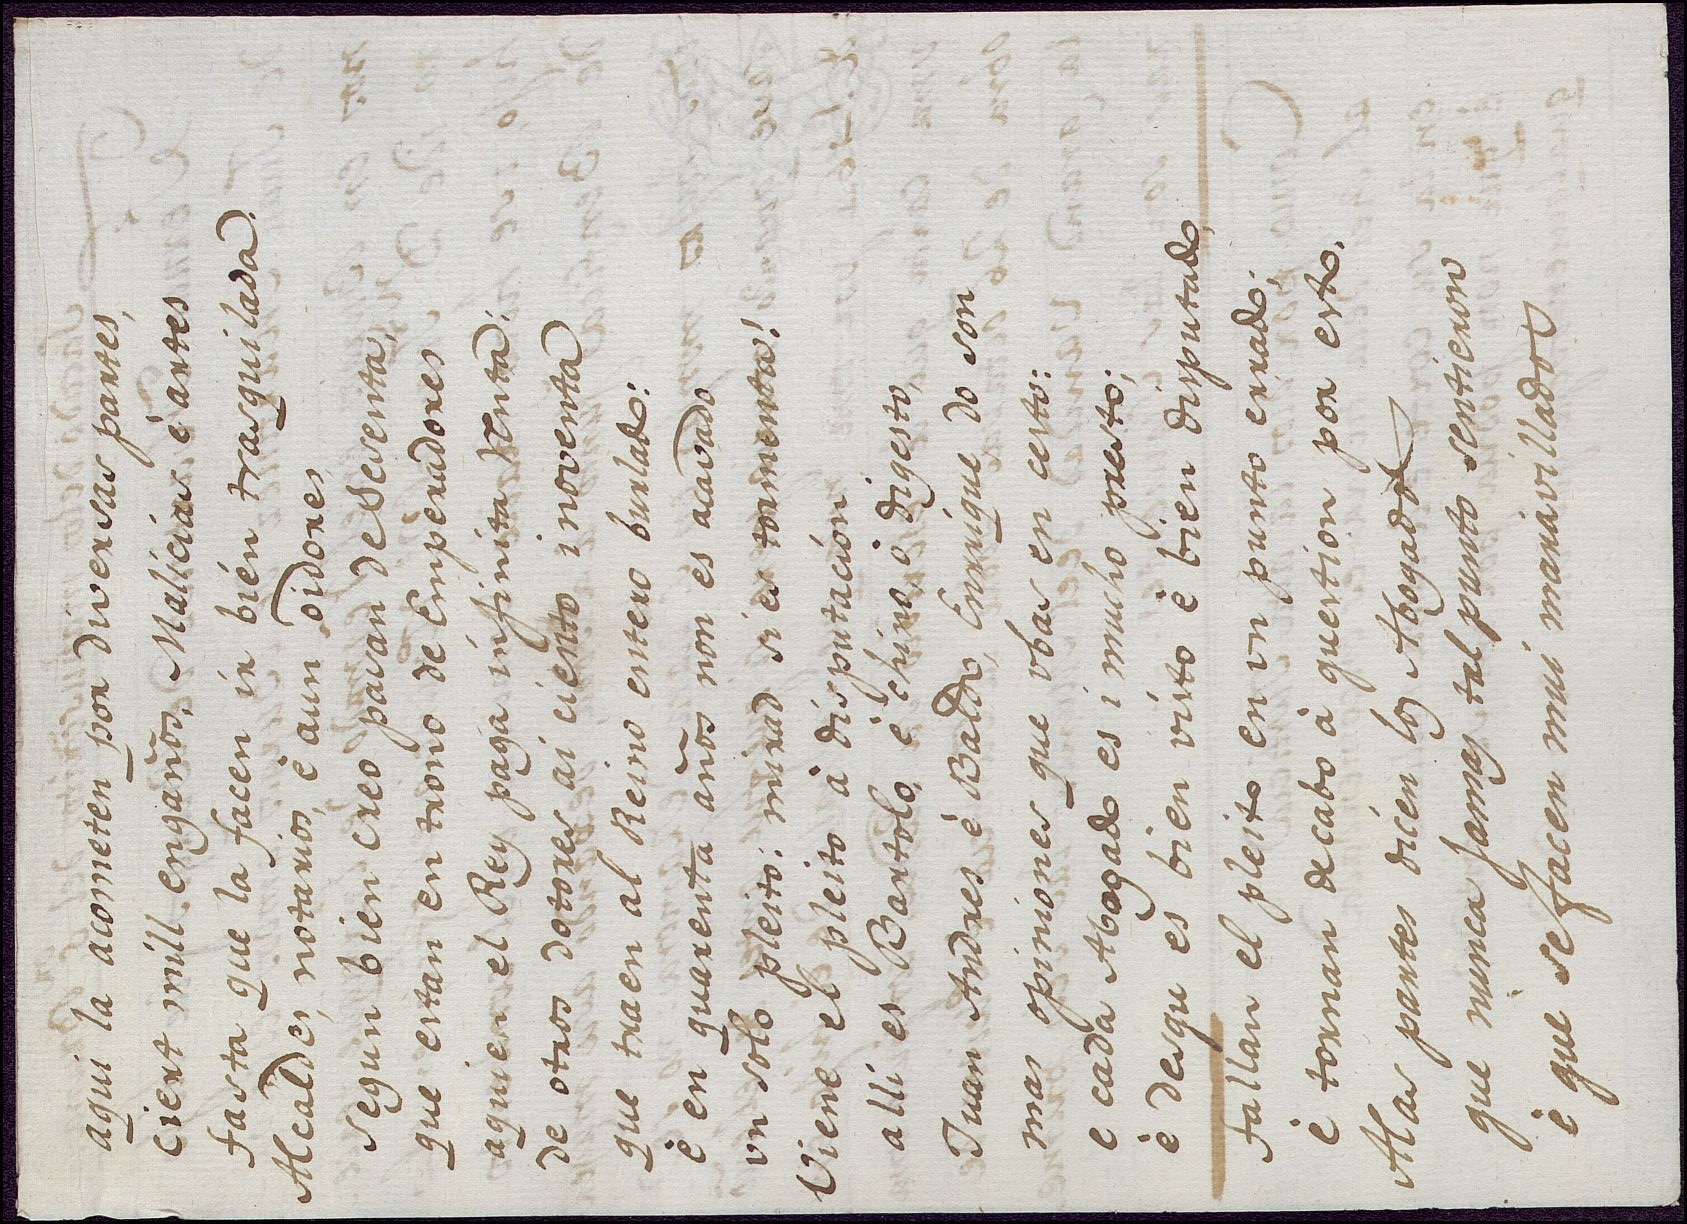 aqui la acometen por diversas partes,
cient mill engaños, Malicias è artes
fasta que la facen ir bién trasquilada.
Alcaldes, notarios, è aun oidores,
segun bien creo pasan de Sesenta,
que estan en trono de Emperadores
aquien el Rey paga infinita renta:
de otros dotores ai ciento i noventa
que traen al Reino entero burlado:
è en quarenta años non es acavado
vn solo pleito: mirad si es tormenta!
Viene el pleito à disputación
alli es Bartolo, è chino, i digesto,
Juan Andres è Baldo, Enrrique do son
mas opiniones que vbas en cesto:
e cada Abogado es i mucho presto;
è desque es bien visto è bien disputado,
fallan el pleito en vn punto errado;
è tornan de cabo à question por esto.
A las partes dicen los Abogados
que nunca jamas tal punto sentieron
è que se facen mui maravillados